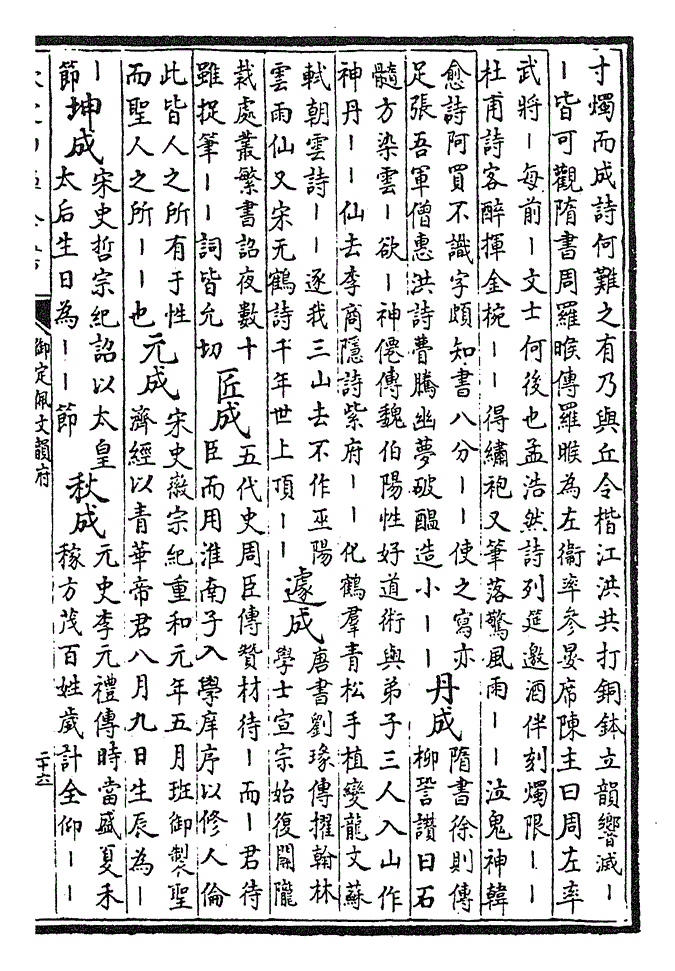 寸燭而成詩何難之有乃與丘令楷江洪共打銅鉢立韻響滅丨
丨皆可觀隋書周羅睺傳羅睺為左衞率參宴席陳主曰周左率
武將丨每前丨文士何後也孟浩然詩列筵邀酒伴刻燭限丨丨
杜甫詩客醉揮金椀丨丨得繡袍又筆落驚風雨丨丨泣鬼神韓
愈詩阿買不識字頗知書八分丨丨使之寫亦
足張吾軍僧惠洪詩瞢騰幽夢破醖造小丨丨
丹成
隋書徐則傳
柳䛒讚曰石
髓方染雲丨欲丨神僊傳魏伯陽性好道術與弟子三人入山作
神丹丨丨仙去李商隱詩紫府丨丨化鶴羣青松手植變龍文蘇
軾朝雲詩丨丨逐我三山去不作巫陽
雲雨仙又宋无鶴詩千年世上頂丨丨
遽成
唐書劉瑑傳擢翰林
學士宣宗始復開隴
裁處叢繁書詔夜數十
雖捉筆丨丨詞皆允切
匠成
五代史周臣傳贊材待丨而丨君待
臣而用淮南子入學庠序以修人倫
此皆人之所有于性
而聖人之所丨丨也
元成
宋史徽宗紀重和元年五月班御製聖
濟經以青華帝君八月九日生辰為丨
丨
節
坤成
宋史哲宗紀詔以太皇
太后生日為丨丨節
秋成
元史李元禮傳時當盛夏禾
稼方茂百姓歲計全仰丨丨
御定佩文韻府
二十六